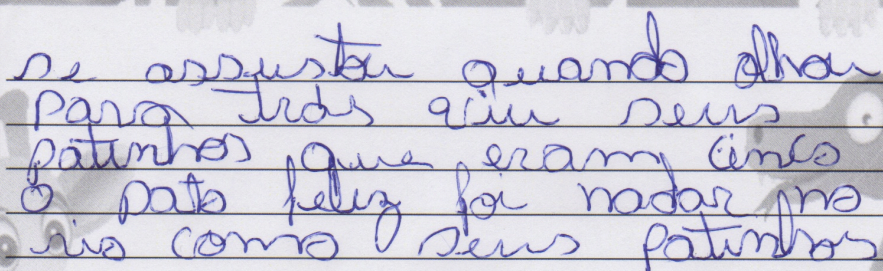 se assustou quando olhou
para trás viu seus
patinhos que eram cinco
O pato feliz foi nadar no
rio como seus patinhos